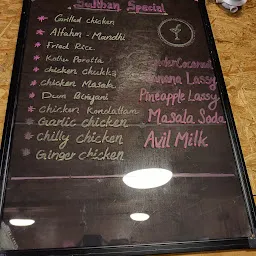 Sulthan Special
Garlled chicken
Alfahm - Mandhi
Fried Rice
Kothu Porotta
chicken chukka
chicken Masala
Dum Biriyani
chicken Kondattam
Garlic chicken
chilly chicken
Ginger chicken
Tender Coconut
Banana Lassy
Pineapple Lassy
Masala Soda
Avil Milk